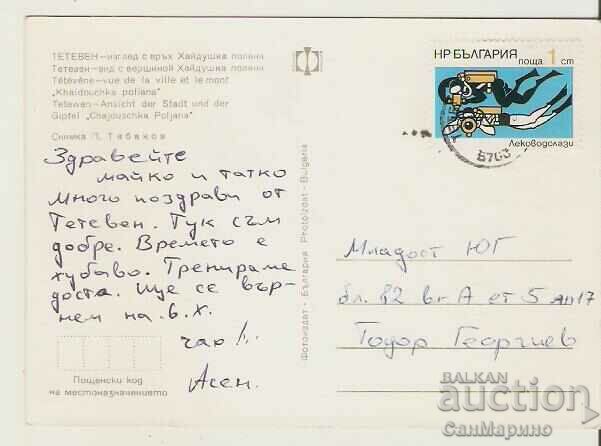 ТЕТЕВЕН—изглед с връх Хайдушка поляна
Тетевен—вид с вершиной Хайдушка поляна
Tétévène—vue de la ville et le mont
„Khaidouchka poliana"
Tetewen—Ansicht der Stadt und der
Gipfel "Chajduschka Poljana"
Снимка П. Табаков
Здравейте
майко и татко
Много поздрави от
Тетевен. Тук съм
добре. Времето е
хубаво. Тренираме
доста. Ще се вър-
нем на 6.X.
чао!..
Асен.
Пощенски код
на местоназначението
Фотоиздат - България Photoizdat - Bulgaria
НР БЪЛГАРИЯ
поща 1 ст
Леководолази
5703
Младост ЮГ
бл. 82 вх А ет 5 ап 17
Тодор Георгиев
BALKAN
auction
СанМарино